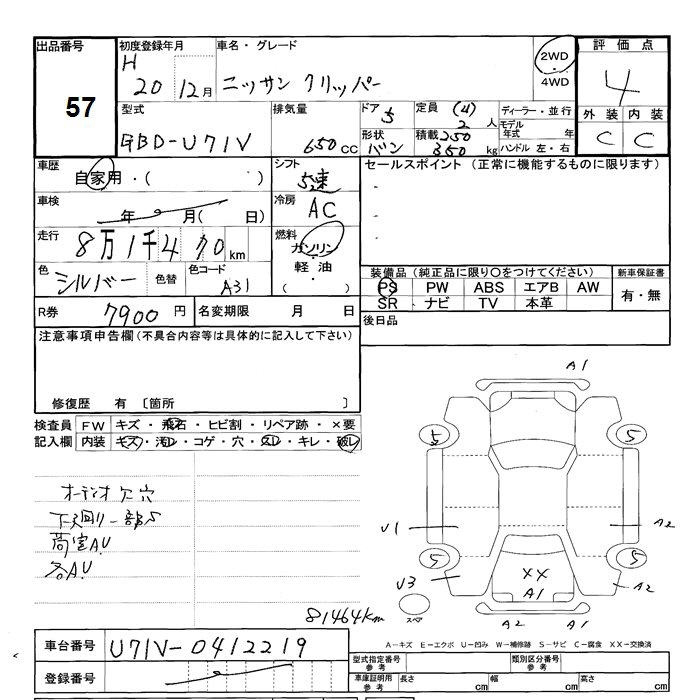 出品番号 57
初度登録年月 H 20 12月
車名・グレード ニッサン クリッパー
2WD
4WD
評価点 4
外装 内装
C C
型式 GBD-U71V
排気量 650 CC
ドア 5
形状 バン
定員 (4) 2 人
積載 250 350 kg
ディーラー・並行
モデル年式 年
ハンドル 左・右
車歴 自家用・( )
シフト 5速
セールスポイント (正常に機能するものに限ります)
車検 年 月( 日)
冷房 AC
走行 8万1千470km
燃料 ガソリン・軽油・( )
色 シルバー 色替 色コード A31
装備品(純正品に限り○をつけてください) 新車保証書
PS PW ABS エアB AW 有・無
SR ナビ TV 本革
R券 7900円 名変期限 月 日
後日品
注意事項申告欄(不具合内容等は具体的に記入して下さい)
修復歴 有 〔箇所 〕
検査員記入欄
FW キズ・飛石・ヒビ割・リペア跡・×要
内装 キズ・汚レ・コゲ・穴・スレ・キレ・破レ
オーディオ欠穴
下廻り一部S
荷室AU
各AU
81464km
A1
5 5
U1 A2
5 5
U3 XX A2
A1
スペア A2 A1
A-キズ E-エクボ U-凹み W-補修跡 S-サビ C-腐食 XX-交換済
車台番号 U71V-0412219
登録番号
型式指定番号 参考 類別区分番号 参考
車庫証明用 参考 長さ cm 幅 cm 高さ cm